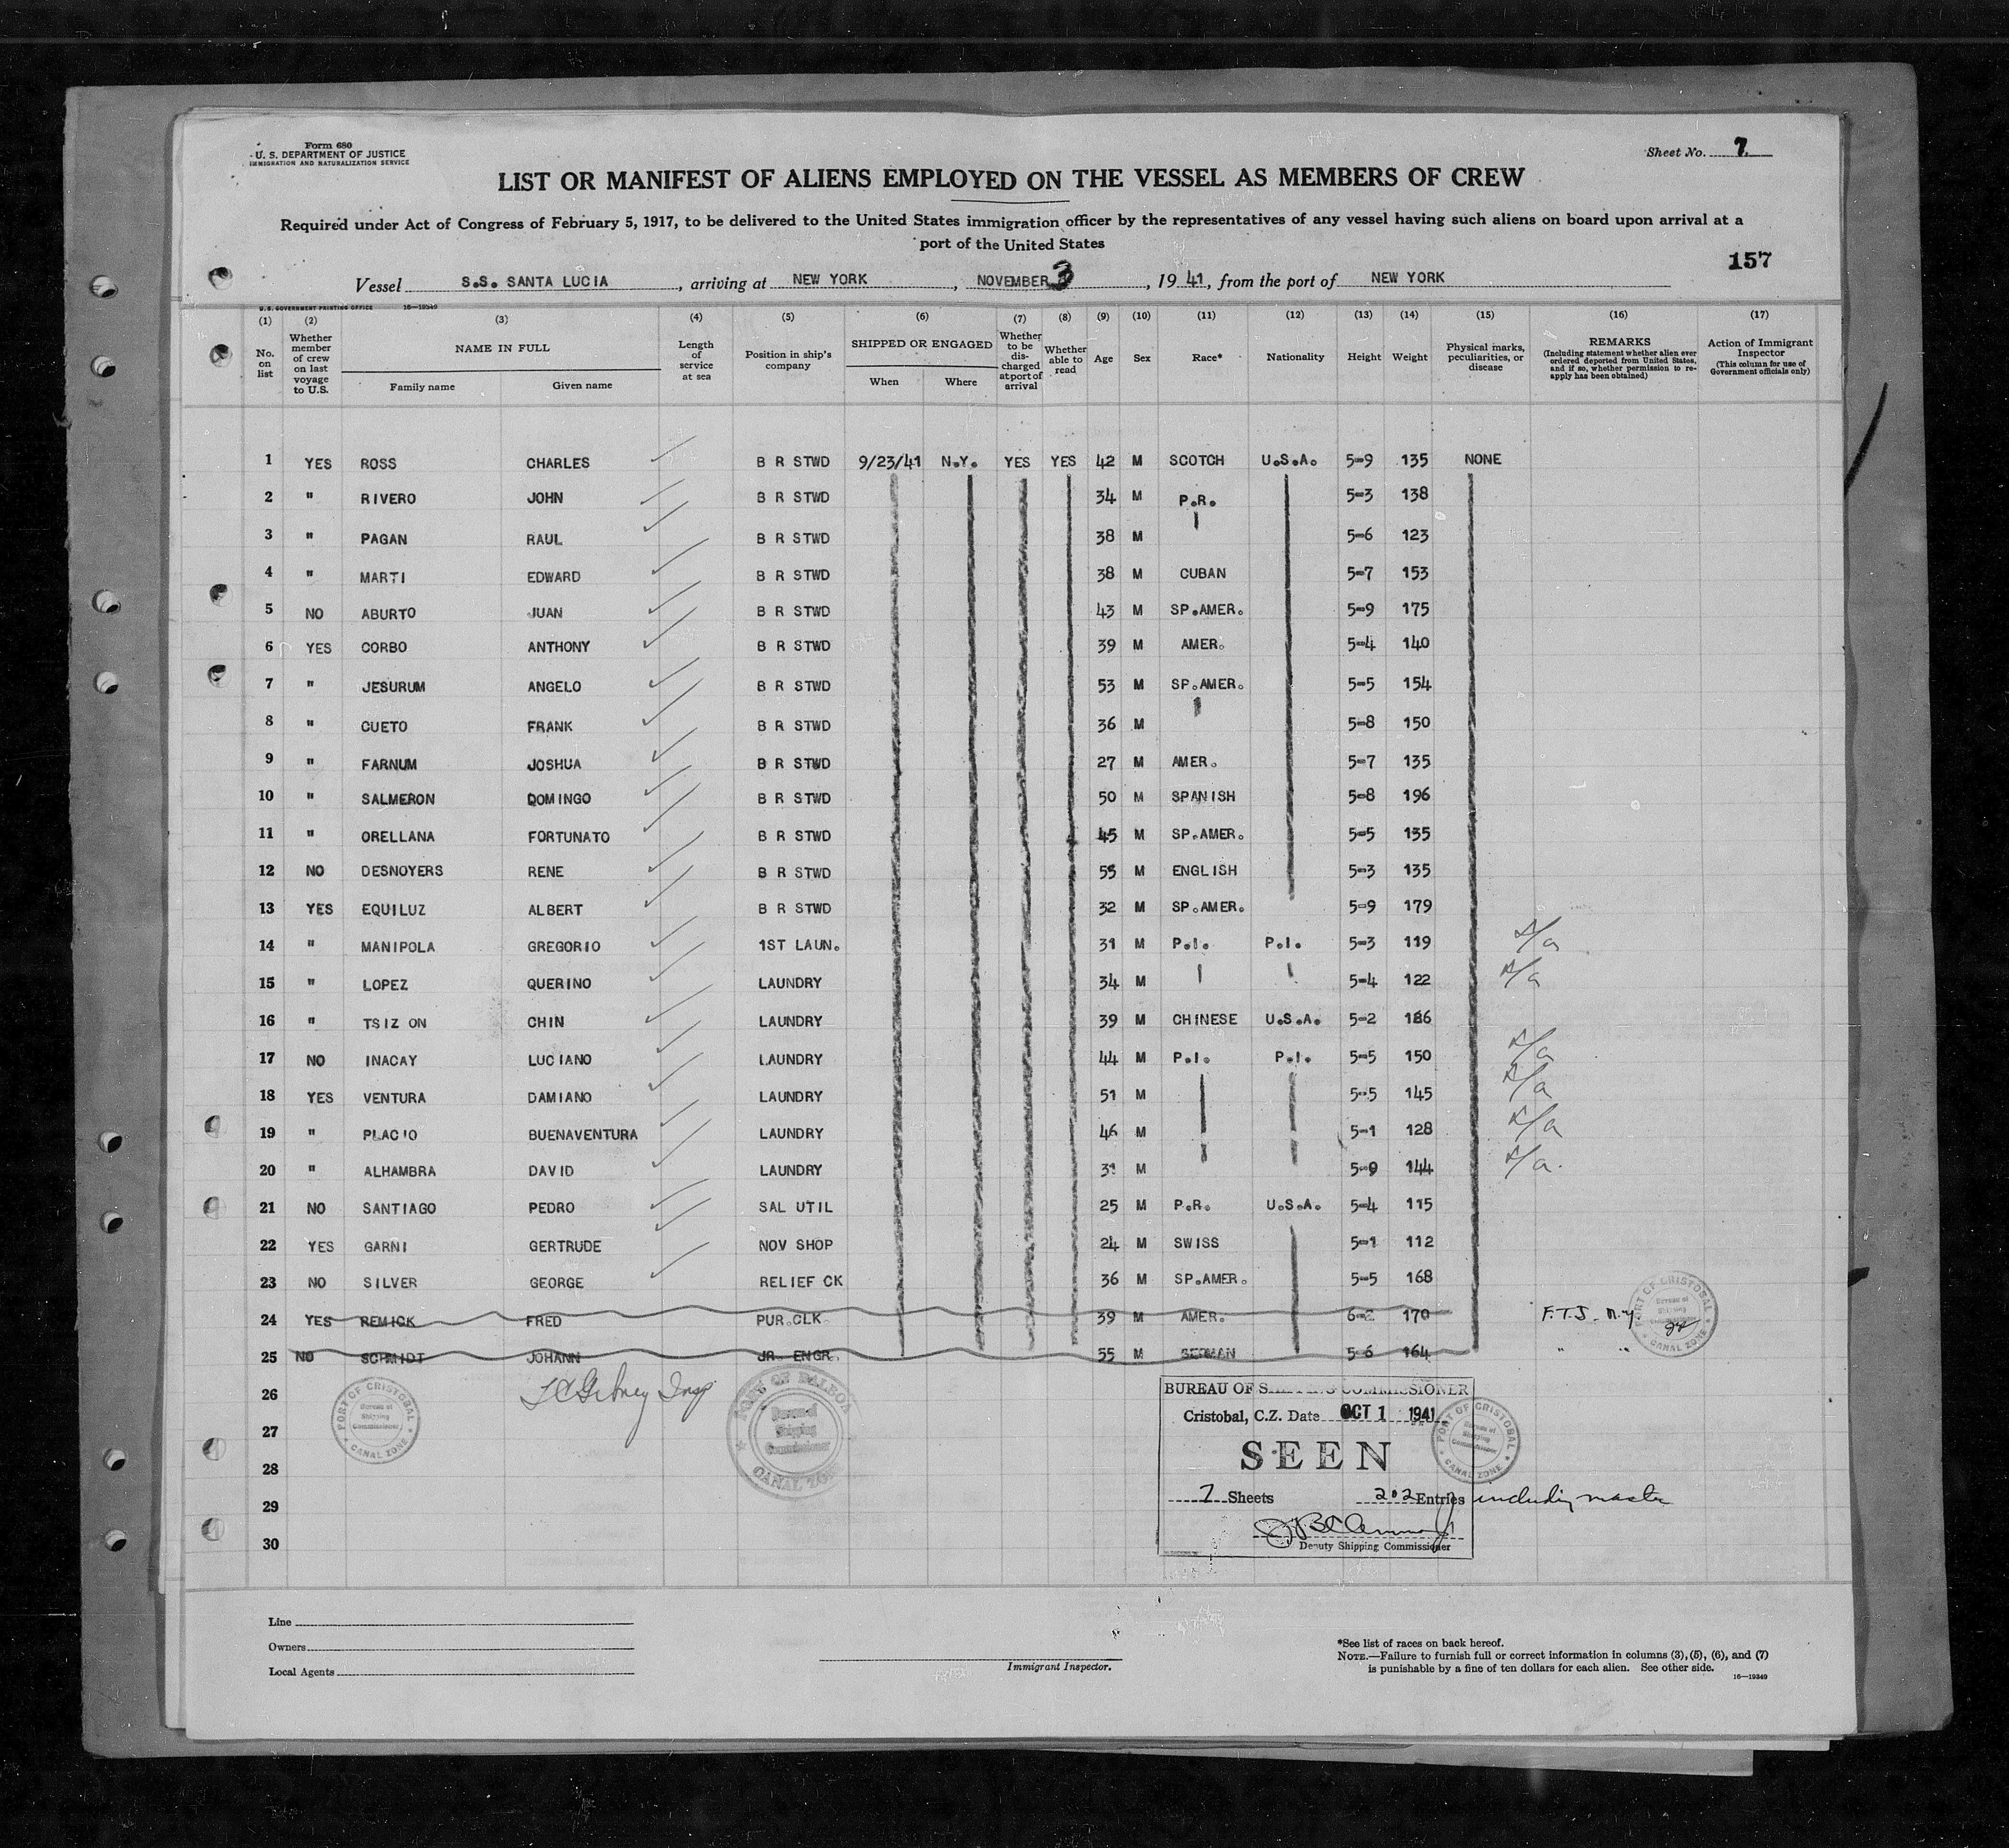 Form 680
U. S. DEPARTMENT OF JUSTICE
IMMIGRATION AND NATURALIZATION SERVICE
Sheet No. 7
LIST OR MANIFEST OF ALIENS EMPLOYED ON THE VESSEL AS MEMBERS OF CREW
Required under Act of Congress of February 5, 1917, to be delivered to the United States immigration officer by the representatives of any vessel having such aliens on board upon arrival at a
port of the United States
157
Vessel S.S. SANTA LUCIA, arriving at NEW YORK, NOVEMBER 3, 1941, from the port of NEW YORK
U.S. GOVERNMENT PRINTING OFFICE 16-19349
(1) (2) (3) (4) (5) (6) (7) (8) (9) (10) (11) (12) (13) (14) (15) (16) (17)
No. on list
Whether member of crew on last voyage to U.S.
NAME IN FULL
Family name Given name
Length of service at sea
Position in ship's company
SHIPPED OR ENGAGED
When Where
Whether to be discharged at port of arrival
Whether able to read
Age Sex Race* Nationality Height Weight
Physical marks, peculiarities, or disease
REMARKS
(Including statement whether alien ever ordered deported from United States, and if so, whether permission to reapply has been obtained)
Action of Immigrant Inspector
(This column for use of Government officials only)
1 YES ROSS CHARLES B R STWD 9/23/41 N.Y. YES YES 42 M SCOTCH U.S.A. 5-9 135 NONE
2 " RIVERO JOHN B R STWD 34 M P.R. 5-3 138
3 " PAGAN RAUL B R STWD 38 M 5-6 123
4 " MARTI EDWARD B R STWD 38 M CUBAN 5-7 153
5 NO ABURTO JUAN B R STWD 43 M SP.AMER. 5-9 175
6 YES CORBO ANTHONY B R STWD 39 M AMER. 5-4 140
7 " JESURUM ANGELO B R STWD 53 M SP.AMER. 5-5 154
8 " CUETO FRANK B R STWD 36 M 5-8 150
9 " FARNUM JOSHUA B R STWD 27 M AMER. 5-7 135
10 " SALMERON DOMINGO B R STWD 50 M SPANISH 5-8 196
11 " ORELLANA FORTUNATO B R STWD 45 M SP.AMER. 5-5 135
12 NO DESNOYERS RENE B R STWD 55 M ENGLISH 5-3 135
13 YES EQUILUZ ALBERT B R STWD 32 M SP.AMER. 5-9 179
14 " MANIPOLA GREGORIO 1ST LAUN. 31 M P.I. P.I. 5-3 119
15 " LOPEZ QUERINO LAUNDRY 34 M 5-4 122
16 " TSIZ ON CHIN LAUNDRY 39 M CHINESE U.S.A. 5-2 126
17 NO INACAY LUCIANO LAUNDRY 44 M P.I. P.I. 5-5 150
18 YES VENTURA DAMIANO LAUNDRY 51 M 5-5 145
19 " PLACIO BUENAVENTURA LAUNDRY 46 M 5-1 128
20 " ALHAMBRA DAVID LAUNDRY 31 M 5-9 144
21 NO SANTIAGO PEDRO SAL UTIL 25 M P.R. U.S.A. 5-4 115
22 YES GARNI GERTRUDE NOV SHOP 24 M SWISS 5-1 112
23 NO SILVER GEORGE RELIEF CK 36 M SP.AMER. 5-5 168
24 YES REMICK FRED PUR.CLK. 39 M AMER. 6-2 170 F.T.J. N.Y
25 NO SCHMIDT JOHANN JR. ENGR. 55 M GERMAN 5-6 164 " "
26
27
28
29
30
PORT OF CRISTOBAL
Bureau of Shipping Commissioner
CANAL ZONE
PORT OF CRISTOBAL
Bureau of Shipping Commissioner
CANAL ZONE
PORT OF BALBOA
Bureau of Shipping Commissioner
CANAL ZONE
BUREAU OF SHIPPING COMMISSIONER
Cristobal, C.Z. Date OCT 1 1941
SEEN
7 Sheets 202 Entries including master
Deputy Shipping Commissioner
PORT OF CRISTOBAL
Bureau of Shipping Commissioner
CANAL ZONE
Line
Owners
Local Agents
Immigrant Inspector.
*See list of races on back hereof.
NOTE.—Failure to furnish full or correct information in columns (3), (5), (6), and (7)
is punishable by a fine of ten dollars for each alien. See other side.
16—19349